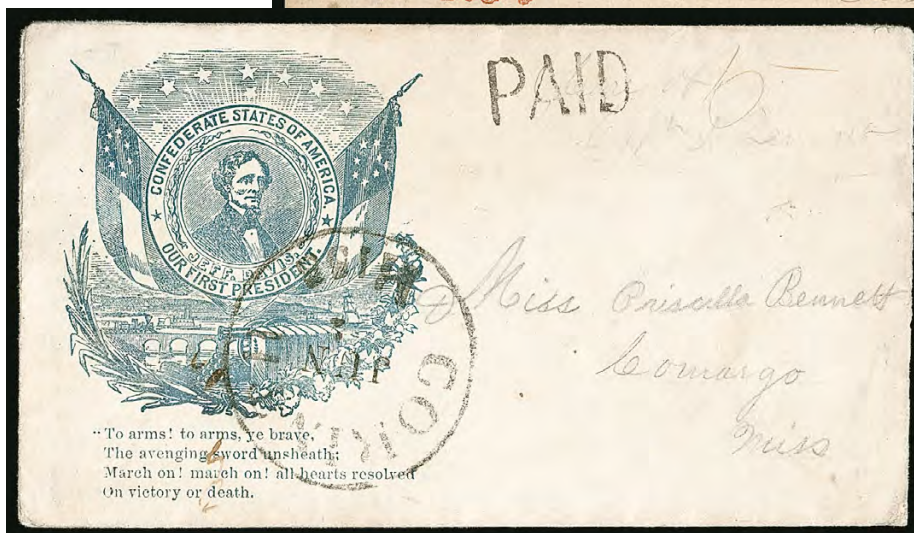 PAID 5
CONFEDERATE STATES OF AMERICA.
JEFF. DAVIS.
OUR FIRST PRESIDENT.
CORIN
MISS
JUN
Miss Priscilla Bennett
Comargo
Miss
"To arms! to arms, ye brave,
The avenging sword unsheath;
March on! march on! all hearts resolved
On victory or death.